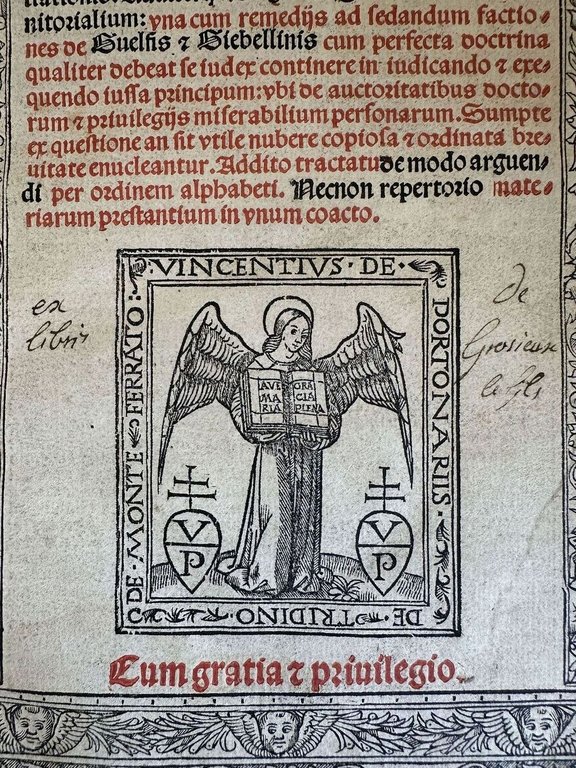 nitorialium: vna cum remedijs ad sedandum factio⸗
nes de Guelfis ⁊ Giebellinis cum perfecta doctrina
qualiter debeat se iudex continere in iudicando ⁊ exe⸗
quendo iussa principum: vbi de auctoritatibus docto⸗
rum ⁊ priuilegijs miserabilium personarum. Sumpte
ex questione an sit vtile nubere copiosa ⁊ ordinata bre⸗
uitate enucleantur. Addito tractatu de modo arguen⸗
di per ordinem alphabeti. Necnon repertorio mate⸗
riarum prestantium in vnum coacto.
VINCENTIVS · DE ·
PORTONARIIS ·
DE · TRIDINO
DE · MONTE FERRATO :
AVE GRA
MA CIA
RIA PLENA
V P
V P
ex
libris
de
Grosieux
le fils
Cum gratia ⁊ priuilegio.